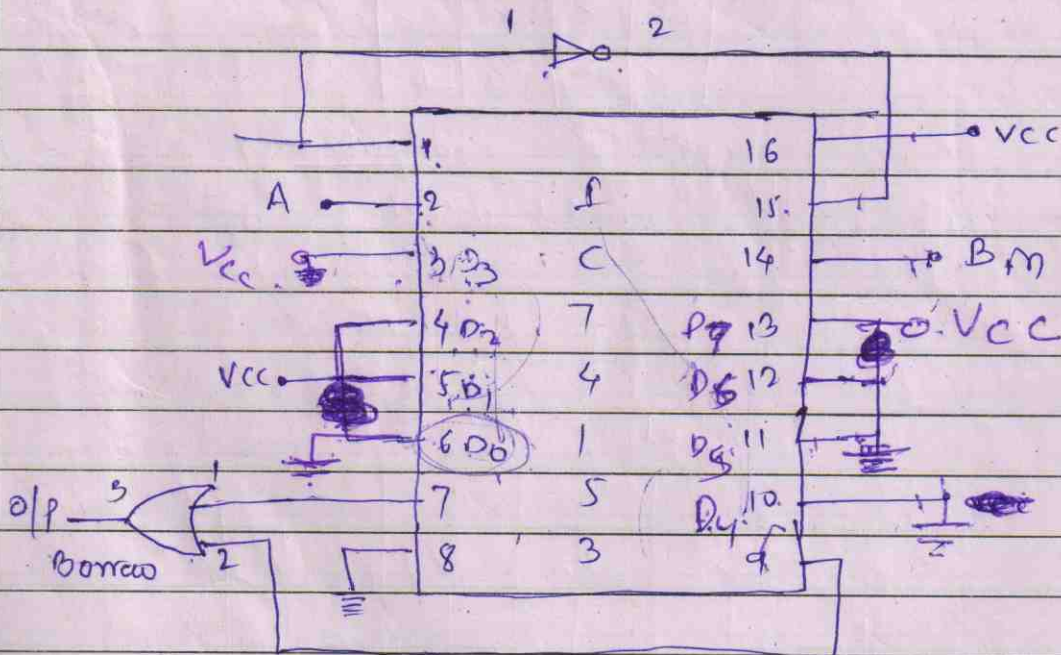 1 2
1. 16 VCC
A 2 I 15.
Vcc. 3 D3 C 14 Bin
4 D2 7 D7 13 VCC
VCC 5 D1 4 D6 12
6 D0 1 D5 11
O/P 3 1 7 5 D4 10
Borrow 2 8 3 9